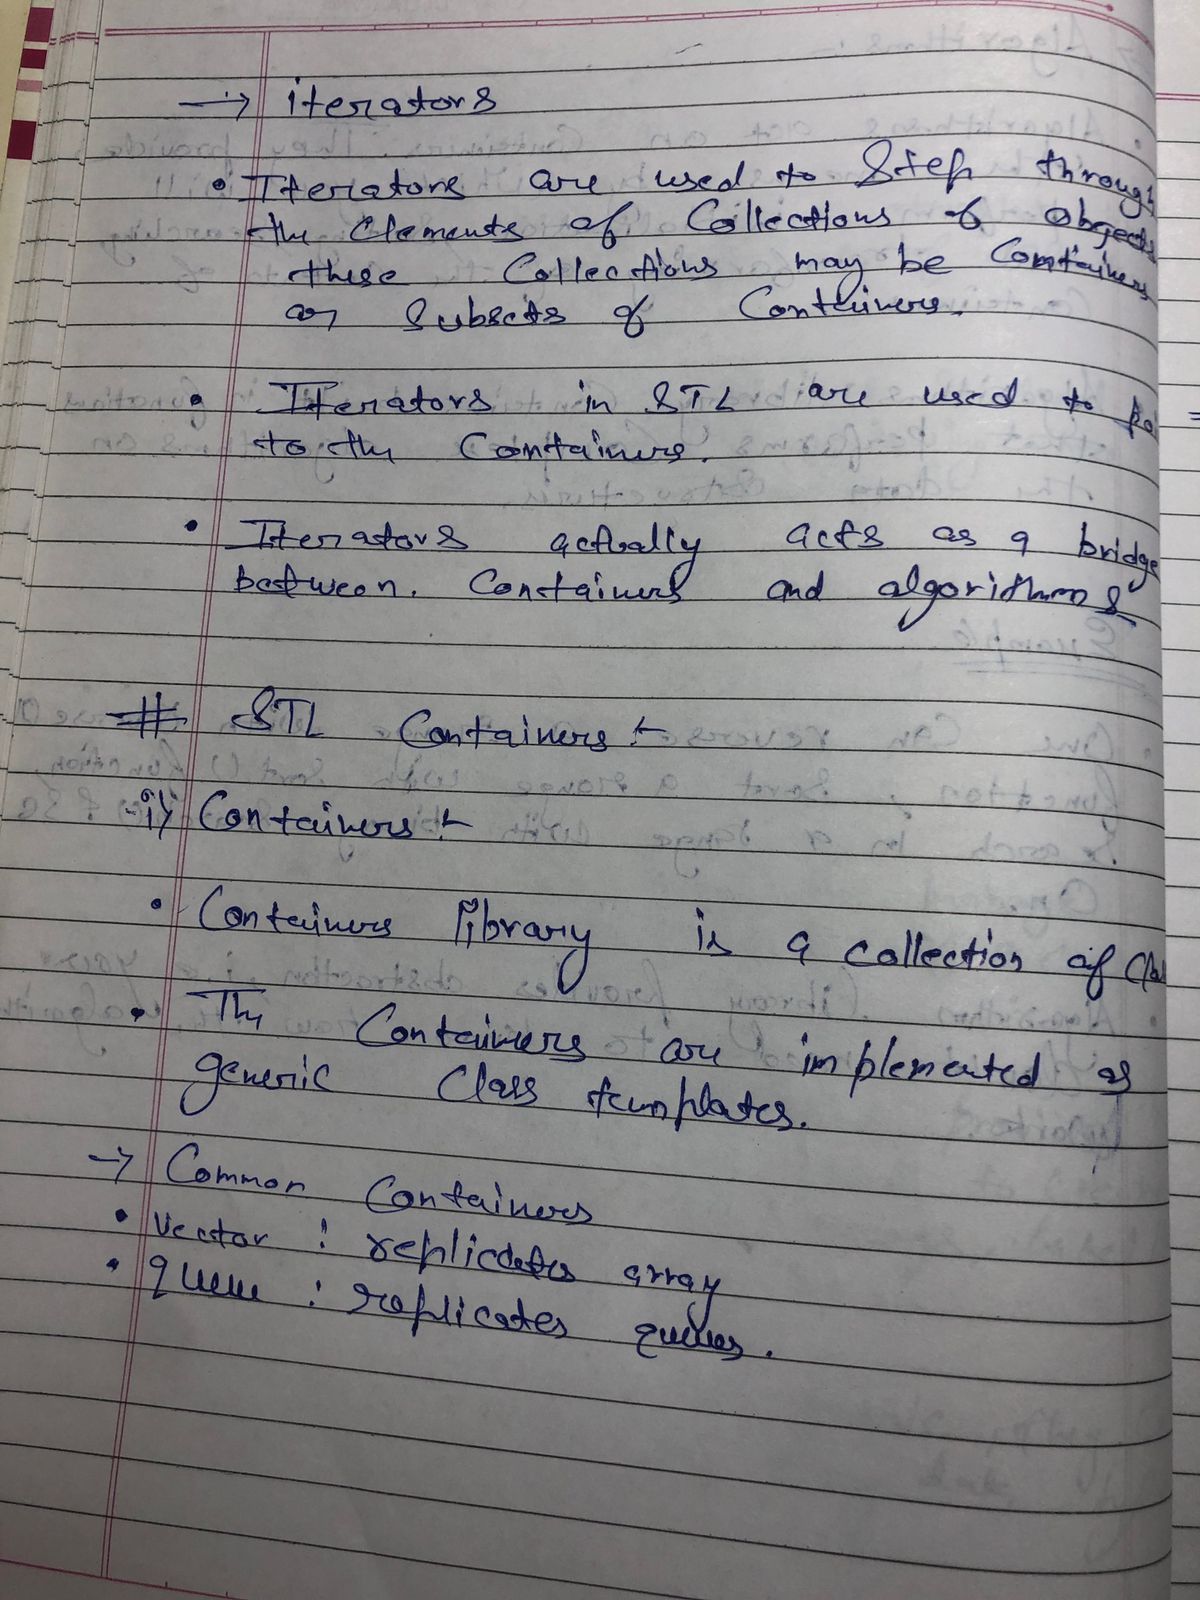 → iterators
• Iterators are used to Step through
the Elements of Collections of objects
these Collections may be Containers
or Subsets of Containers.
• Iterators in STL are used to po
to the Containers.
• Iterators actually acts as a bridge
between. Containers and algorithms
# STL Containers :-
i) Containers :-
• Containers library is a collection of Clas
• The Containers are implemented as
generic Class templates.
→ Common Containers
• Vector : replicates array
• queue : replicates queues.